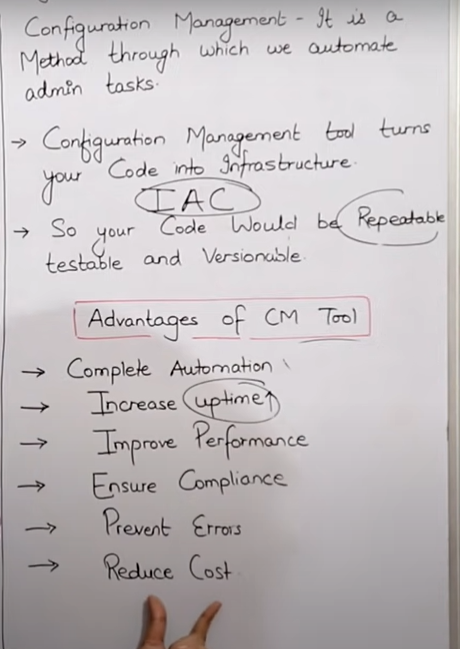 Configuration Management - It is a
Method through which we automate
admin tasks.
→ Configuration Management tool turns
your Code into Infrastructure.
IAC
→ So your Code Would be Repeatable
testable and Versionable.
Advantages of CM Tool
→ Complete Automation
→ Increase uptime↑
→ Improve Performance
→ Ensure Compliance
→ Prevent Errors
→ Reduce Cost.